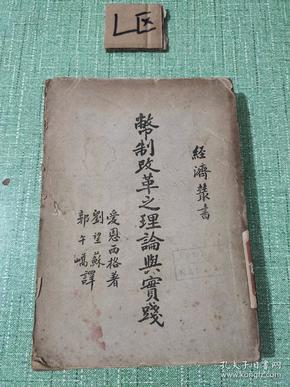 L区
經濟叢書
幣制改革之理論與實踐
愛恩西格著
劉望蘇
郭午嶠譯
孔夫子旧书网